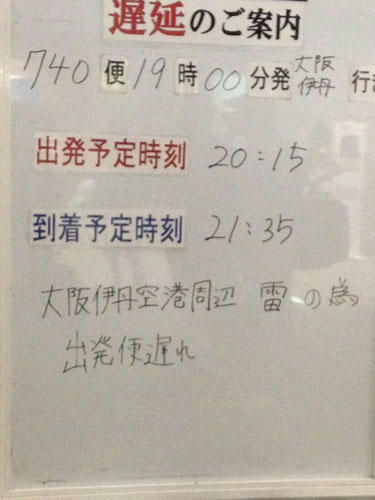 遅延のご案内
740便19時00分発大阪伊丹行き
出発予定時刻 20:15
到着予定時刻 21:35
大阪伊丹空港周辺 雷の為
出発便遅れ